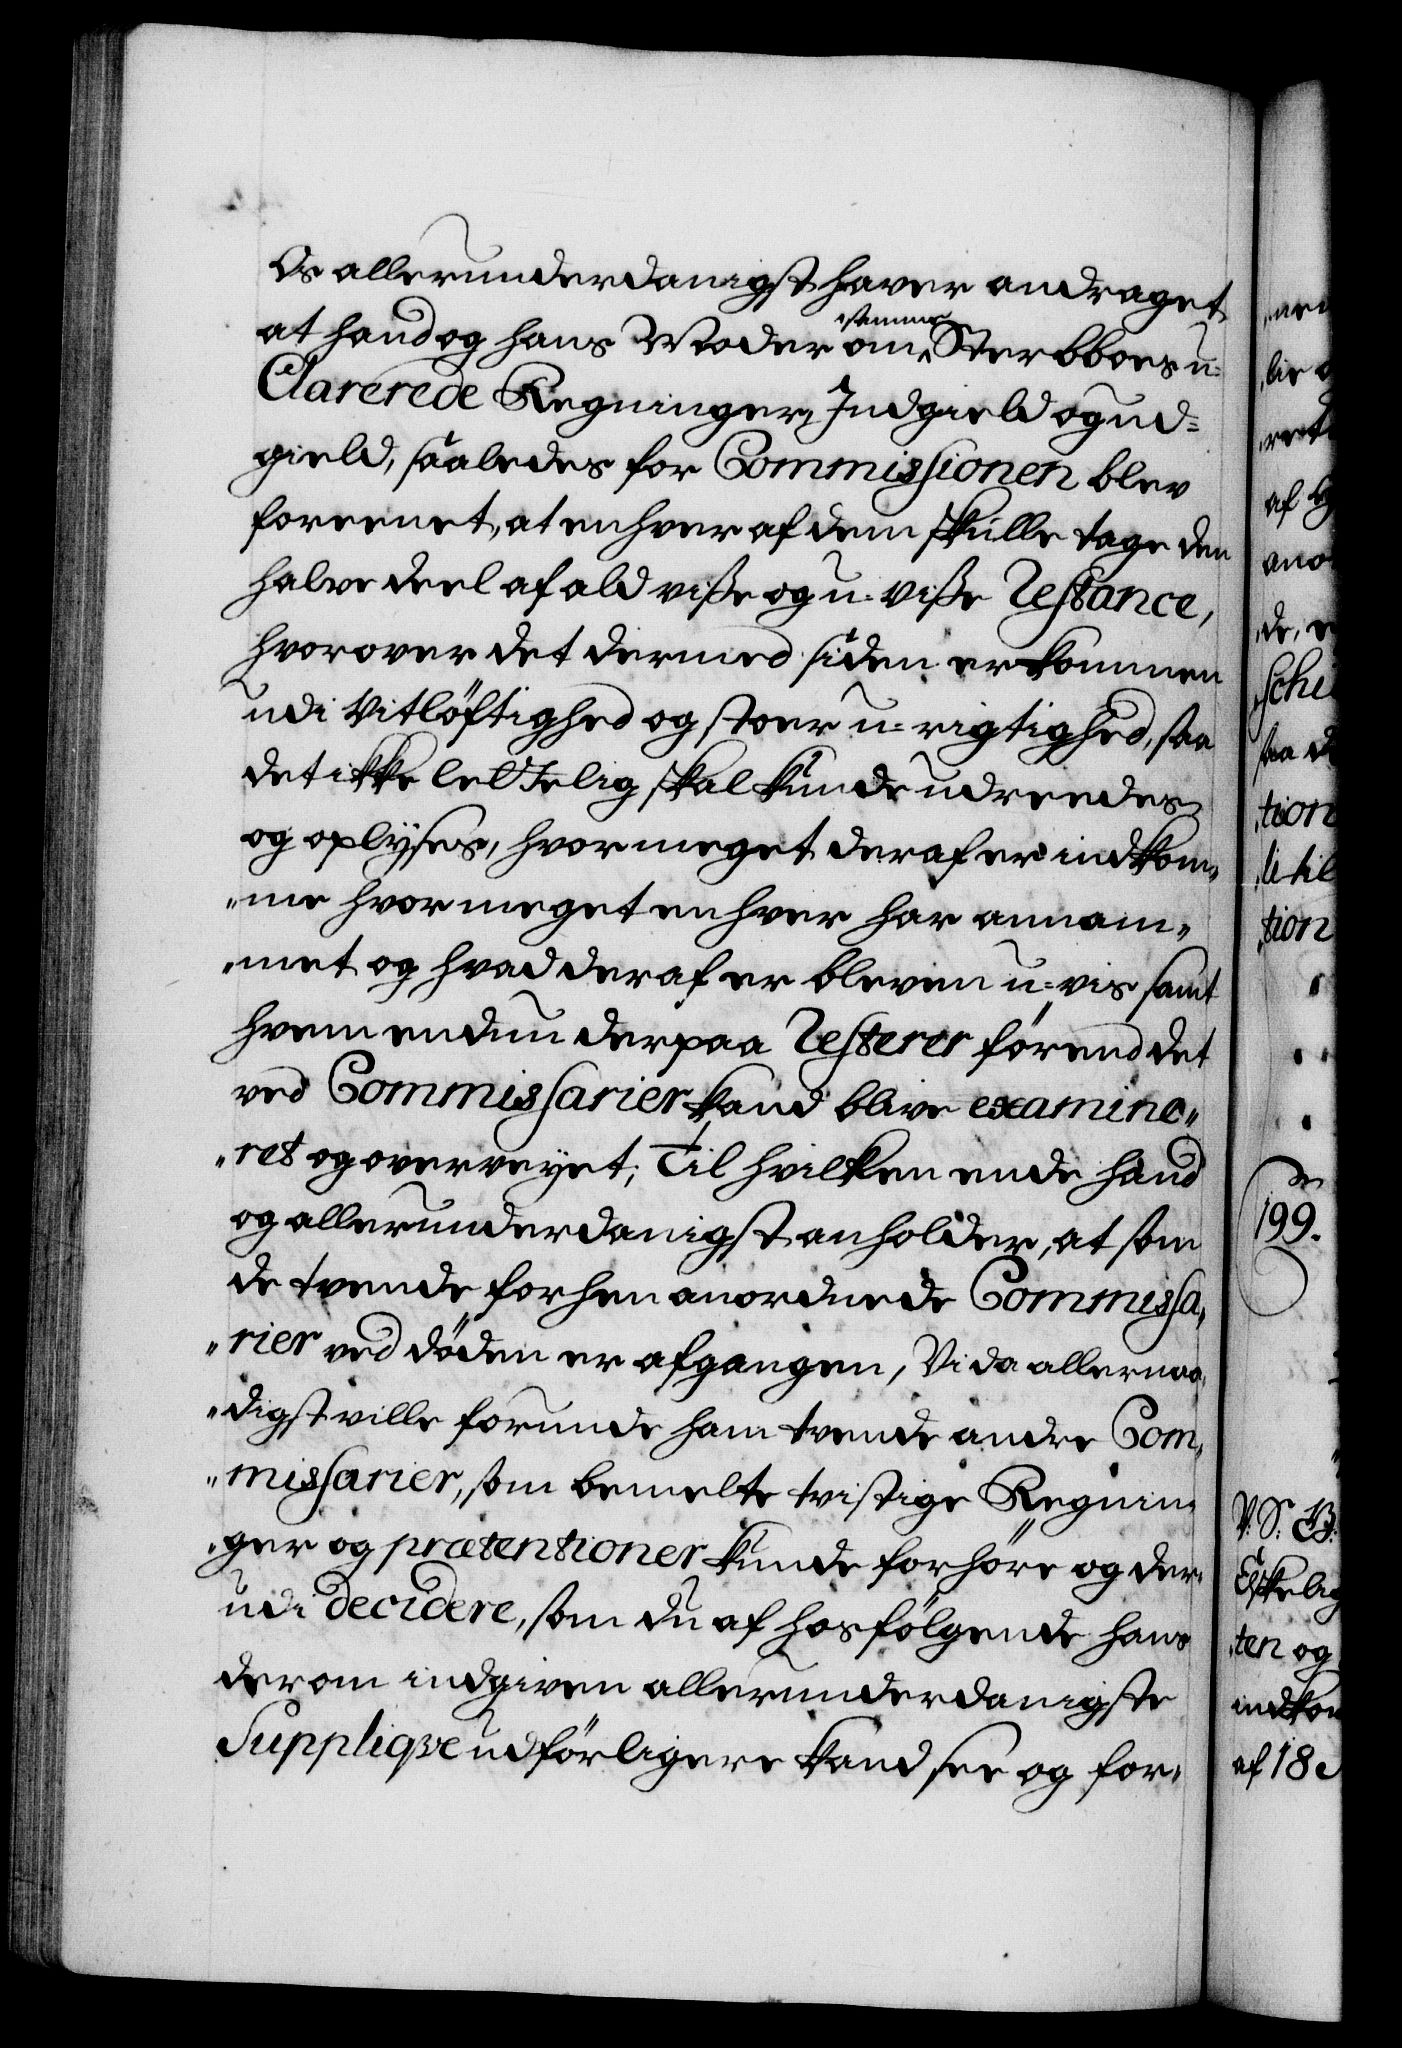 Os allerunderdanigst haver andraget
at hand og hans Moder om samme Sterbboes u-
Clarerede Regninger, Indgield og ud-
gield, saaledes for Commissionen blev
foreenet, at enhver af dem skulle tage den
halve deel af ald visse og u-visse Restance,
hvorover det dermed siden er kommen
udi Vitløftighed og stoer u-rigtighed, saa
det ikke lettelig skal kunde udreedes
og oplyses, hvor meget deraf er indkom-
me hvor meget enhver har annam-
met og hvad deraf er bleven u-vis samt
hvem endnu derpaa Resterer førend det
ved Commissarier kand blive examine-
ret og overveyet; Til hvilken ende hand
og allerunderdanigst anholder, at som
de tvende forhen anordnede Commissa-
rier ved døden er afgangen, Vi da allernaa-
digst ville forunde ham tvende andre Com-
missarier, som bemelte tvistige Regnin-
ger og prætentioner kunde forhøre og der-
udi decidere, som du af hosfølgende hans
derom indgiven allerunderdanigste
Suppliqve udførligere kand see og for-
199.
V. S. B.
af 18